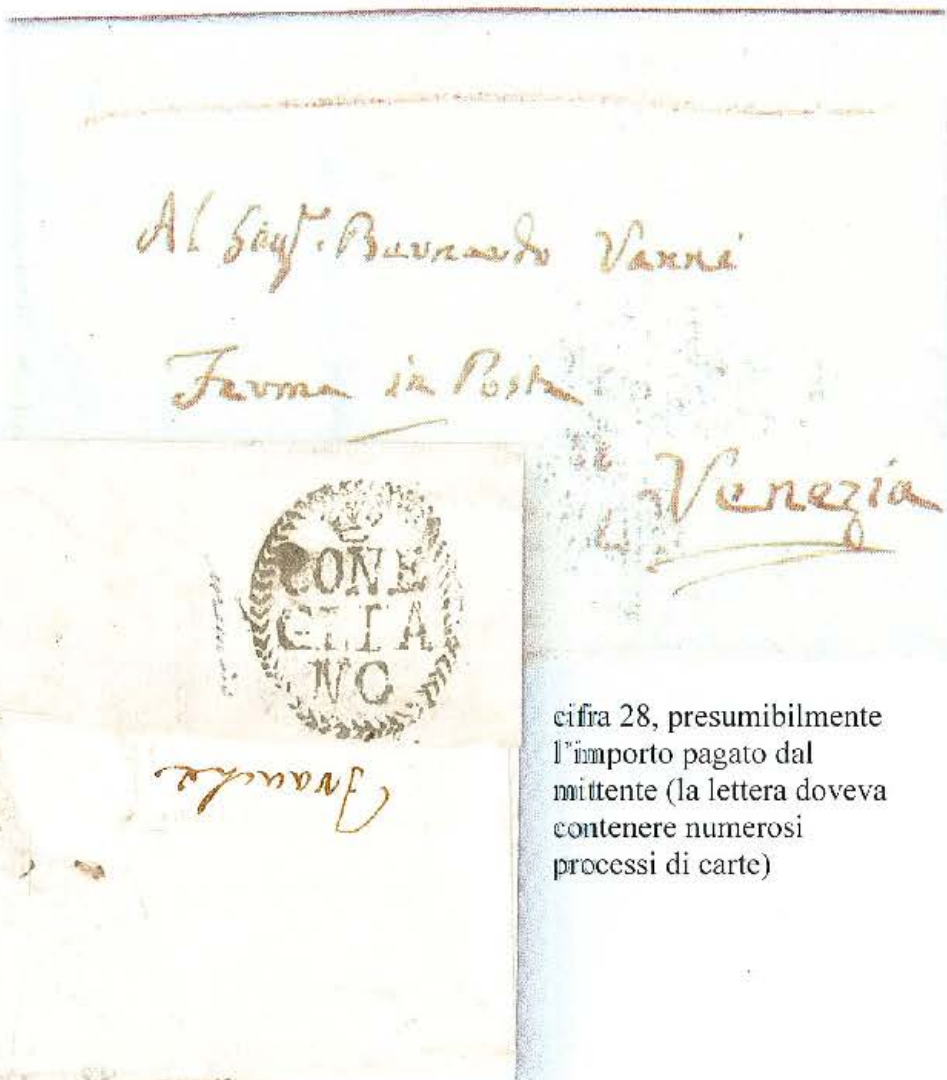 Al Sigr. Bernardo Vanni
Ferma in Posta
Venezia
CONE
GLIA
NO
Franche
cifra 28, presumibilmente
l'importo pagato dal
mittente (la lettera doveva
contenere numerosi
processi di carte)